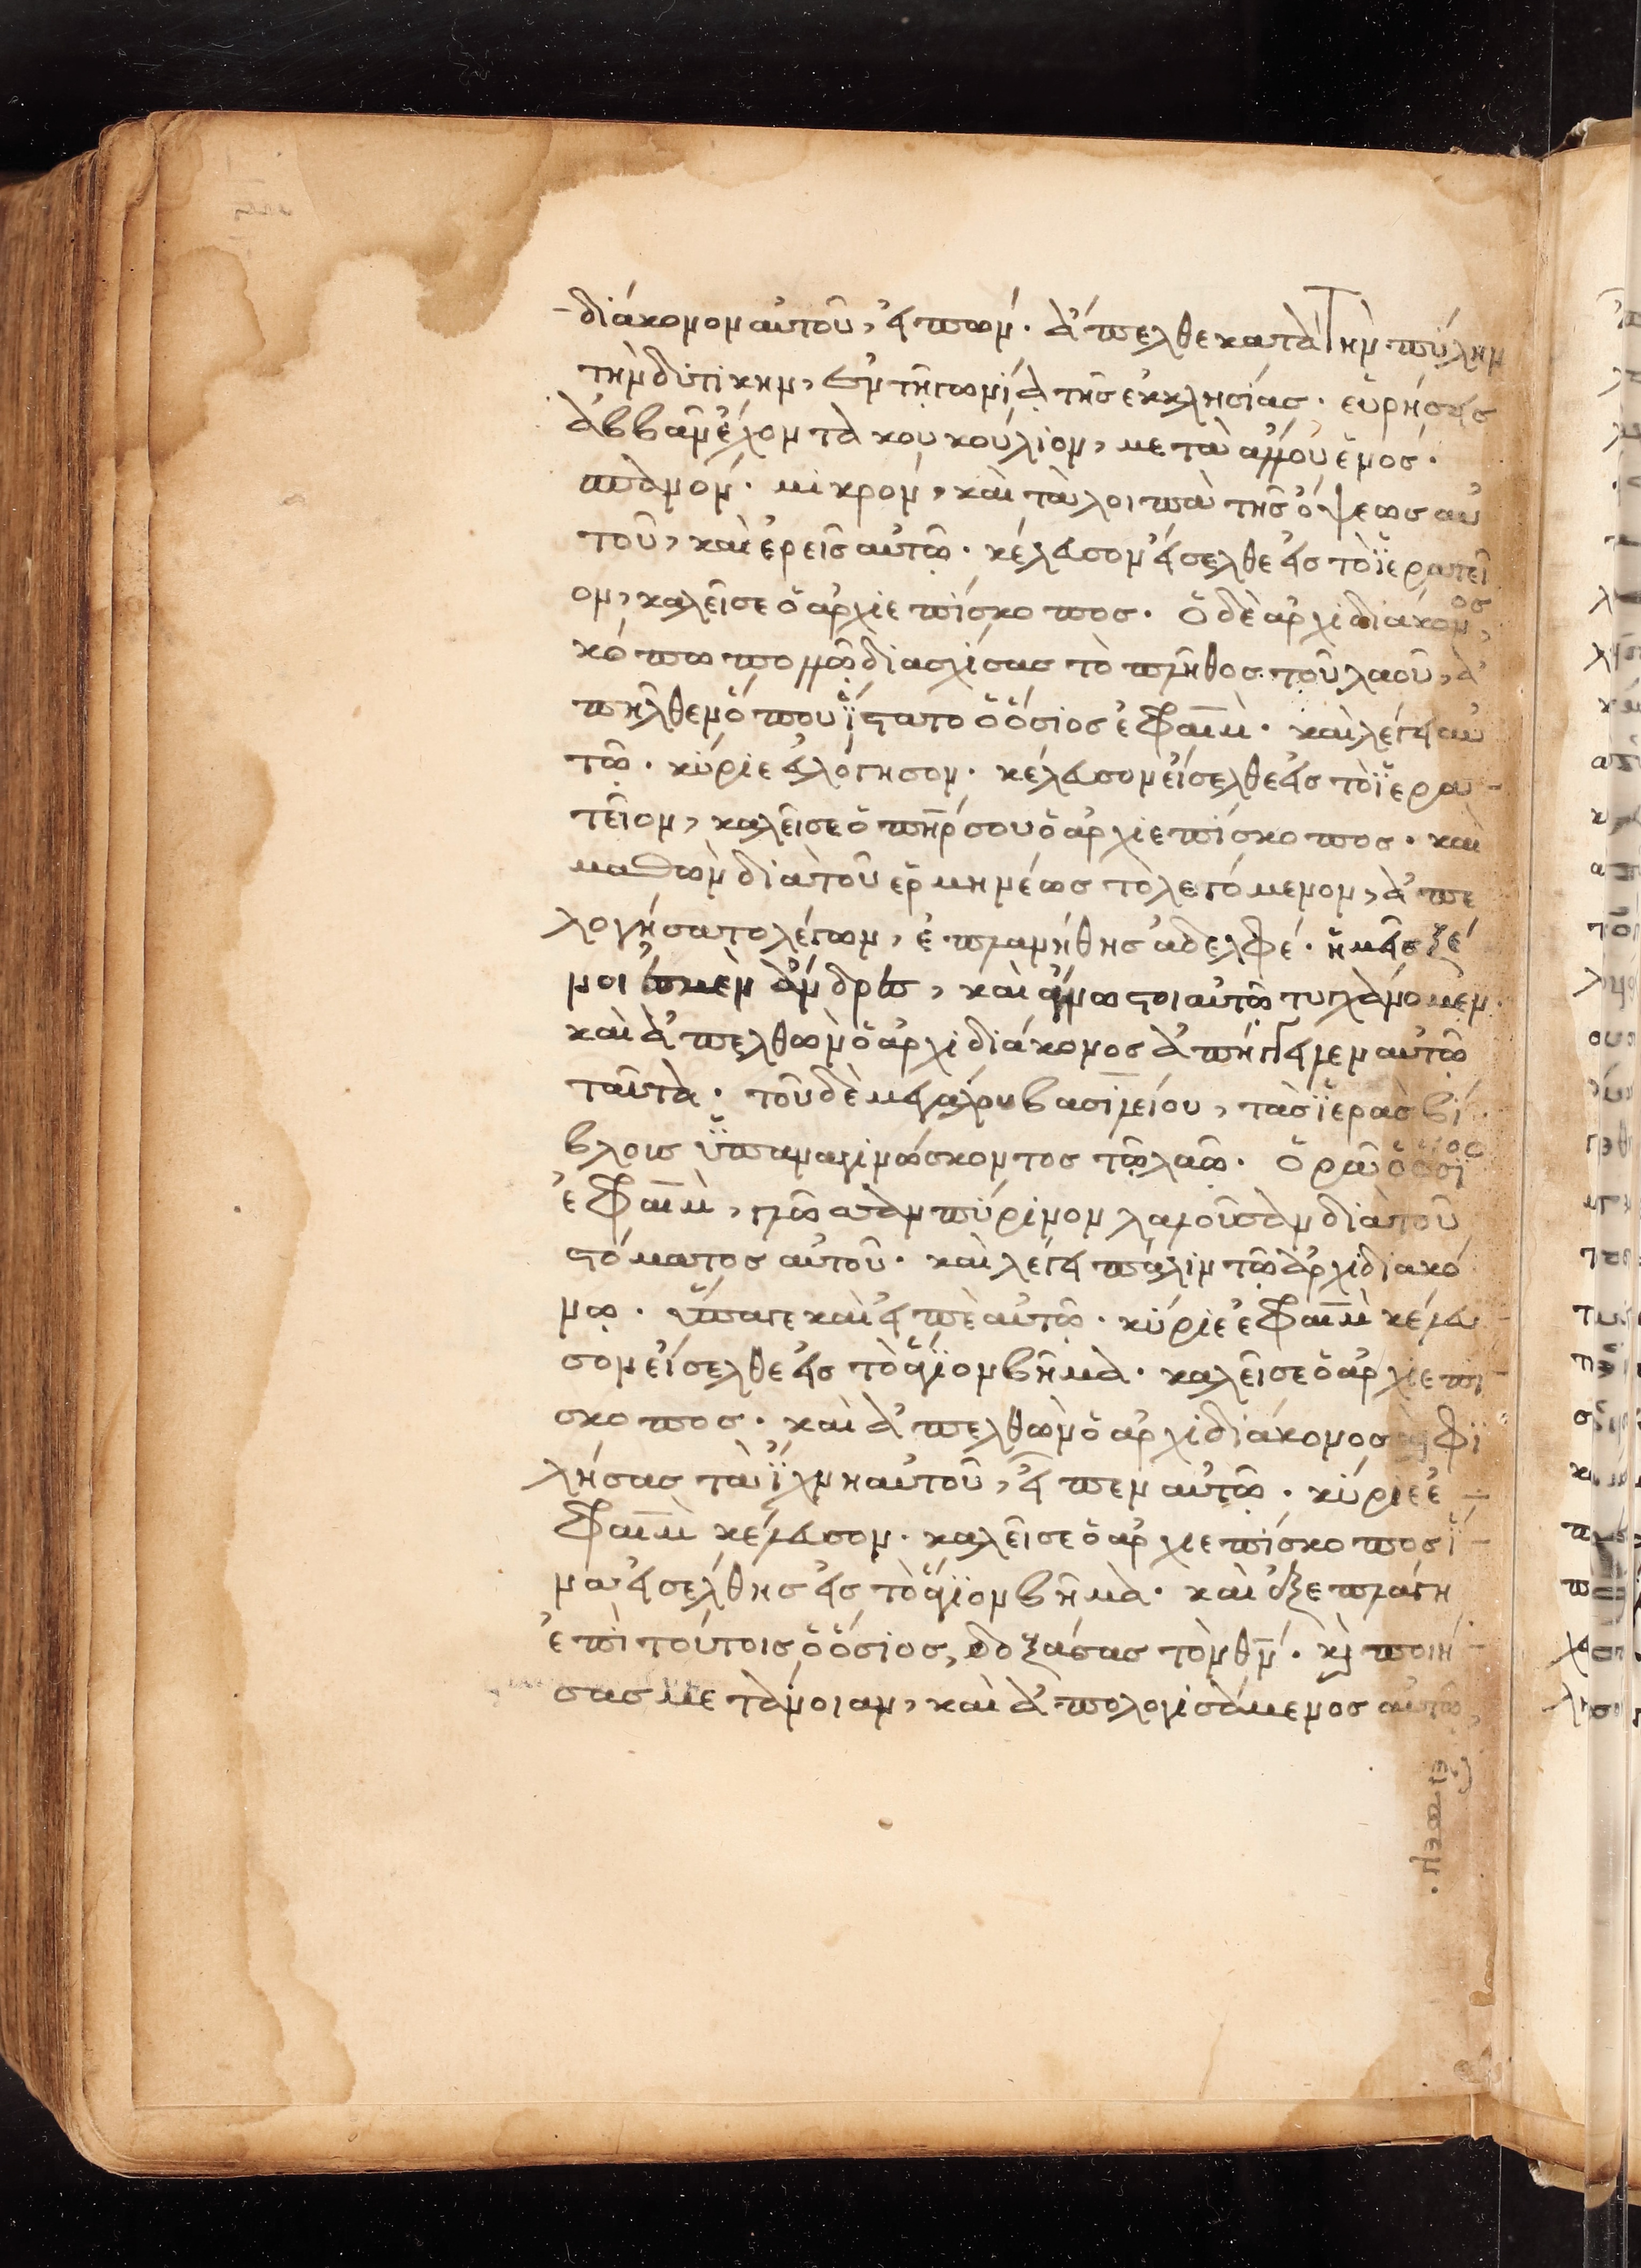 διάκονον αὐτοῦ, εἰπών· ἄπελθε κατὰ τὴν πύλην
τὴν δυτικὴν, ἐν τῇ γωνίᾳ τῆς ἐκκλησίας· εὑρήσεις
ἀββᾶν ἔχοντα κουκούλιον, μετὰ ἄλλου ἑνός·
σπανόν· μικρόν, καὶ τὰ λοιπὰ τῆς ὄψεως αὐ
τοῦ, καὶ ἐρεῖς αὐτῶ· κέλευσον εἴσελθε εἰς τὸ ἱερατεῖ
ον, καλεῖ σε ὁ ἀρχιεπίσκοπος· ὁ δὲ ἀρχιδιάκονος,
κόπω πολλῶ διασχίσας τὸ πλῆθος τοῦ λαοῦ, ἀ
πῆλθεν ὅπου ἵστατο ὁ ὅσιος ἐφραὶμ· καὶ λέγει αὐ
τῶ· κύριε εὐλόγησον· κέλευσον εἴσελθε εἰς τὸ ἱερα
τεῖον, καλεῖ σε ὁ πηρ σου ὁ ἀρχιεπίσκοπος· καὶ
μαθὼν διὰ τοῦ ἑρμηνέως τὸ λεγόμενον, ἀπε
λογήσατο λέγων, ἐπλανήθης ἀδελφέ· ἡμεῖς ξέ
νοι ἐσμὲν ἄνδρες, καὶ ἄγνωστοι αὐτῶ τυγχάνομεν·
καὶ ἀπελθὼν ὁ ἀρχιδιάκονος ἀπήγγειλεν αὐτῶ
ταῦτα· τοῦ δὲ μεγάλου βασιλείου, τὰς ἱερὰς βί
βλοις ὑπαναγινώσκοντος τῶ λαῶ· ὁρᾶ ὁ ὅσιος
ἐφραὶμ, γλῶσσαν πύρινον λαλοῦσαν διὰ τοῦ
στόματος αὐτοῦ· καὶ λέγει πάλιν τῶ ἀρχιδιακό
νω· ὕπαγε καὶ εἰπὲ αὐτῶ· κύριε ἐφραὶμ κέλευ
σον εἴσελθε εἰς τὸ ἅγιον βῆμα· καλεῖ σε ὁ ἀρχιεπί
σκοπος· καὶ ἀπελθὼν ὁ ἀρχιδιάκονος καὶ φι
λήσας τὰ ἴχνη αὐτοῦ, εἶπεν αὐτῶ· κύριε ἐ
φραὶμ κέλευσον· καλεῖ σε ὁ ἀρχιεπίσκοπος ἵ
να εἰσέλθης εἰς τὸ ἅγιον βῆμα· καὶ ἐξεπλάγη
ἐπὶ τούτοις ὁ ὅσιος, δοξάσας τὸν θν· κὶ ποιή
σας μετάνοιαν, καὶ ἀπολογισάμενος αὐτῶ,
εἶπεν·